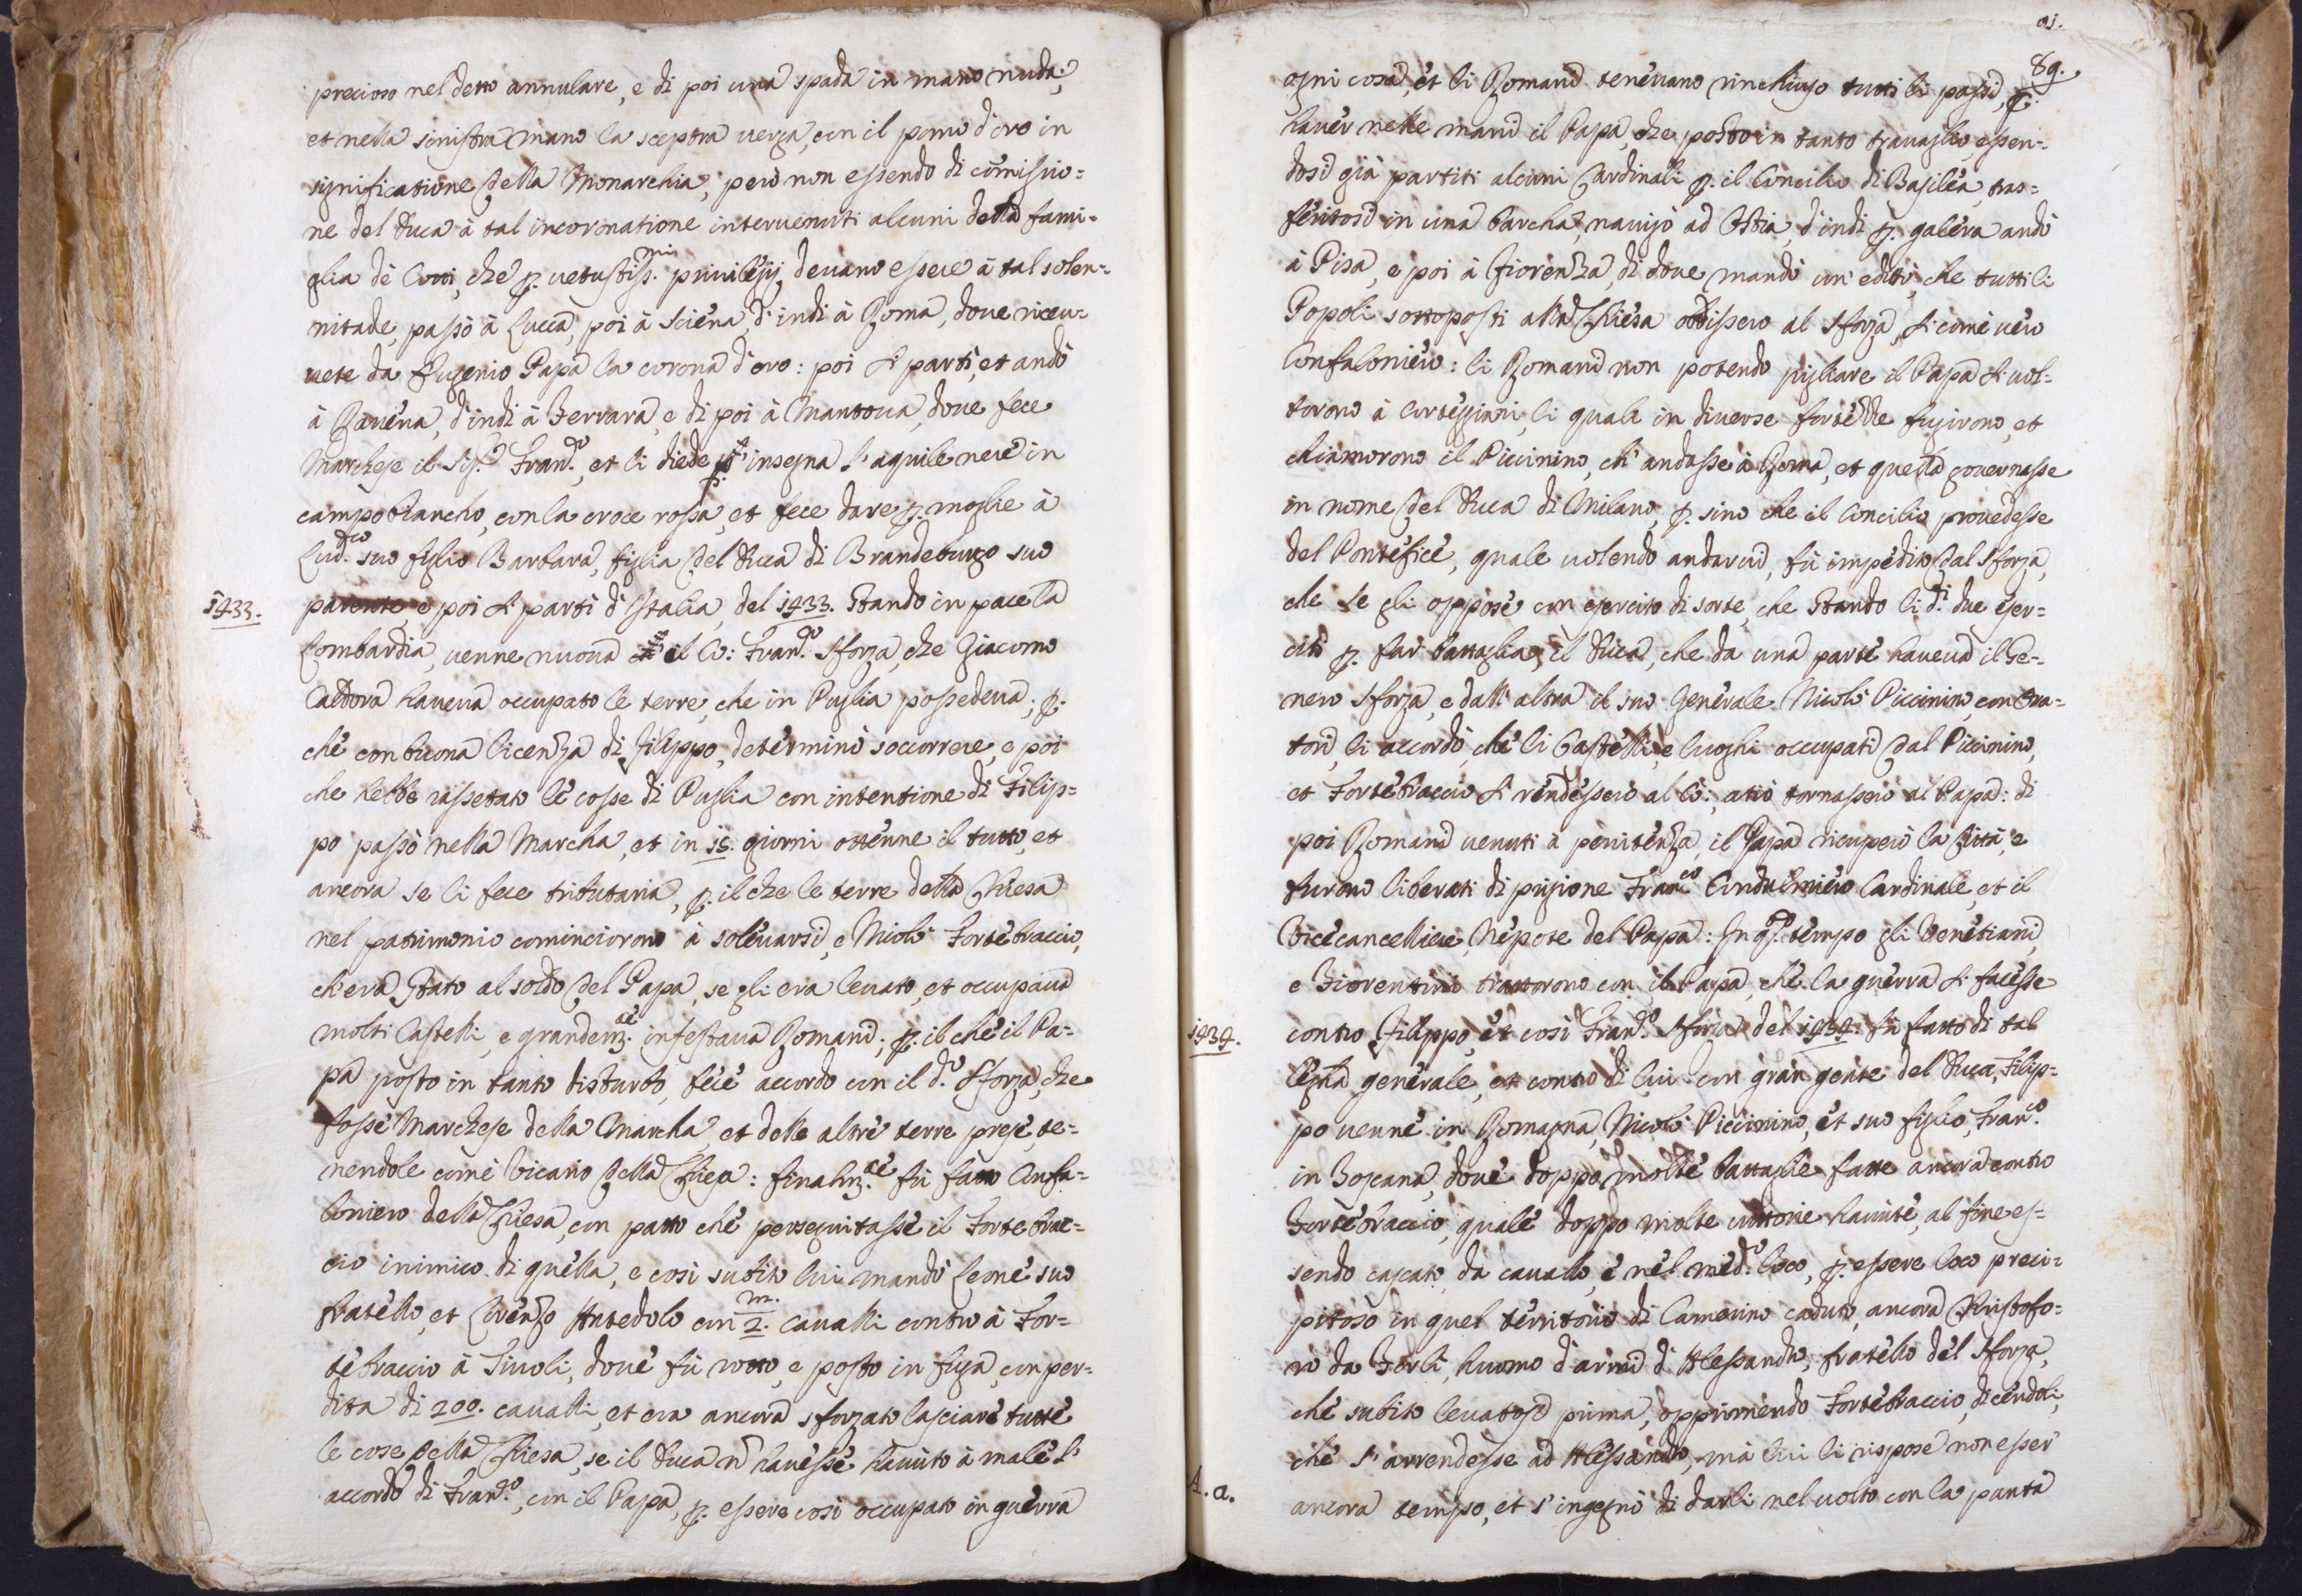 precioso nel detto annulare, e di poi una spada in mano nuda;
et nella sinistra mano la sceptra uerga, con il pomo d'oro in
significatione della Monarchia, però non essendo di comissio=
ne del Duca à tal incoronatione interuenuti alcuni della fami=
glia dè Conti, che p. uetustiss.mi priuilegij deuano essere à tal solen=
nitade, passò à Lucca, poi à Sciena, d'indi à Roma, doue riceu=
uete da Eugenio Papa la corona d'oro: poi si partì, et andò
à Rauena, d'indi à Ferrara, e di poi à Mantoua, doue fece
Marchese il Sig.r Fran.co, et li diede p. insegna l'aquile nere in
campo biancho, con la croce rossa, et fece dare p. moglie à
Lud.co suo figlio Barbara, figlia del Duca di Brandeburgo suo
1433.
parente, e poi si partì d'Italia, del 1433. Stando in pace la
Lombardia, uenne nuoua al Co: Fran.co Sforza, che Giacomo
Caldora haueua occupato le terre, che in Puglia possedeua; p.
che con buona licenza di Filippo, determinò soccorrere, e poi
che hebbe rassetato le cosse di Puglia con intentione di Filip=
po passò nella Marcha, et in 15. giorni ottenne il tutto, et
ancora se li fece tributaria, p. il che le terre della Chiesa
nel patrimonio cominciorono à soleuarsi, e Nicolò Fortebraccio,
ch'era Stato al soldo del Papa, se gli era leuato, et occupaua
molti Castelli, e grandem.te infestaua Romani; p. il che il Pa=
pa posto in tanto disturbo, fece accordo con il d.o Sforza, che
fosse Marchese della Marcha et delle altre terre prese, te=
nendole come Vicario della Chiesa: finalm.te fù fatto Confa=
loniero della Chiesa, con patto che perseguitasse il Fortebrac=
cio inimico di quella, e così subito lui mandò Leone suo
fratello, et Lorenzo Attedolo con 2.m. caualli contro à For=
tebraccio à Tiuoli, doue fù rotto, e posto in fuga, con per=
dita di 200. caualli, et era ancora sforzato lasciare tutte
le cose della Chiesa, se il Duca n̄ hauesse hauuto à male l'
accordo di Fran.co, con il Papa, p. essere così occupato in guerra
91.
89.
ogni cosa, et li Romani teneuano rinchiuso tutti li passi, p.
hauer nelle mani il Papa, che posto in tanto trauaglio, essen=
dosi già partiti alcuni Cardinali p. il Concilio di Basilea, tras=
feritosi in una barcha, nauigò ad Ostia, d'indi p. galera andò
à Pisa, e poi à Fiorenza, di doue mandò un' editto, che tutti li
Popoli sottoposti alla Chiesa obedissero al Sforza, si come uero
Confaloniero: li Romani non potendo pigliare il Papa si uol=
torono à Corteggiani, li quali in diuerse fortezze fugirono, et
chiamorono il Piccinino, ch' andasse à Roma, et quella gouernasse
in nome del Duca di Milano, p. sino che il Concilio prouedesse
del Pontefice, quale uolendo andarui, fù impedito dal Sforza,
che se gli oppose con esercito di sorte, che Stando li d.ti due eser=
citi p. far battaglia, il Duca, che da una parte haueua il Ge=
nero Sforza, e dall' altra il suo Generale Nicolò Piccinino, con Ora=
tori, li accordò, che li Castelli, e luoghi occupati dal Piccinino,
et Fortebraccio si rendessero al Co:, atiò tornassero al Papa: di
poi Romani uenuti à penitenza, il Papa ricuperò la Città, e
furono liberati di prigione Fran.co Condulmiero Cardinale, et il
Vicecancelliere, Nepote del Papa: In q.to tempo gli Venetiani,
e Fiorentini trattorono con il Papa, che la guerra si facesse
1434.
contro Filippo, et così Fran.co Sforza del 1434. fù fatto di tal
legha generale, et contro di lui con gran gente del Duca, Filip=
po uenne in Romagna, Nicolò Piccinino, et suo figlio, Fran.co
in Toscana, doue doppo molte battaglie fatte ancora contro
Fortebraccio, quale doppo molte uittorie hauute, al fine es=
sendo cascato da cauallo, e nel med.o loco, p. essere loco preci=
pitoso in quel territorio di Camerino caduto, ancora Christofo=
ro da Forlì, huomo d'armi d'Alessandro, fratello del Sforza,
che subito leuatosi prima, opprimendo Fortebraccio, dicendoli,
che s'arrendesse ad Alessandro, mà lui li rispose non esser
A.a.
ancora tempo, et s'ingegnò di darli nel uolto con la punta